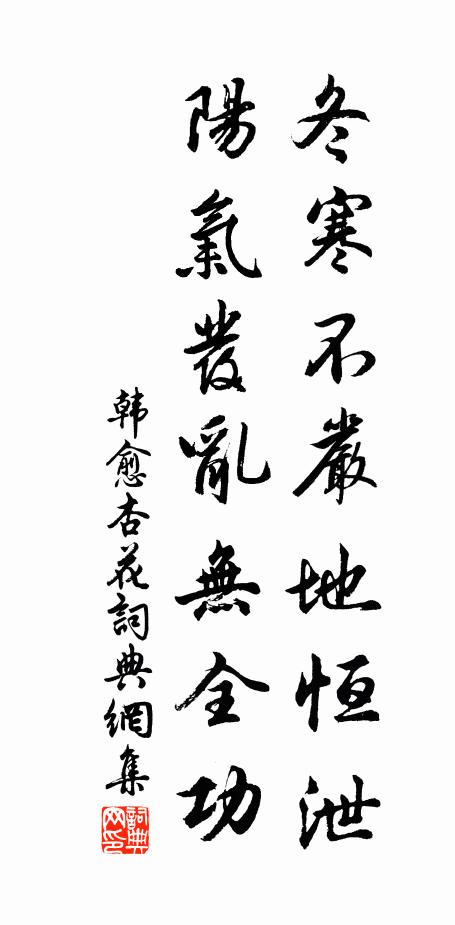 冬寒不嚴地恒泄
陽氣發亂無全功
韓愈杏花詞典網集
詞典網印